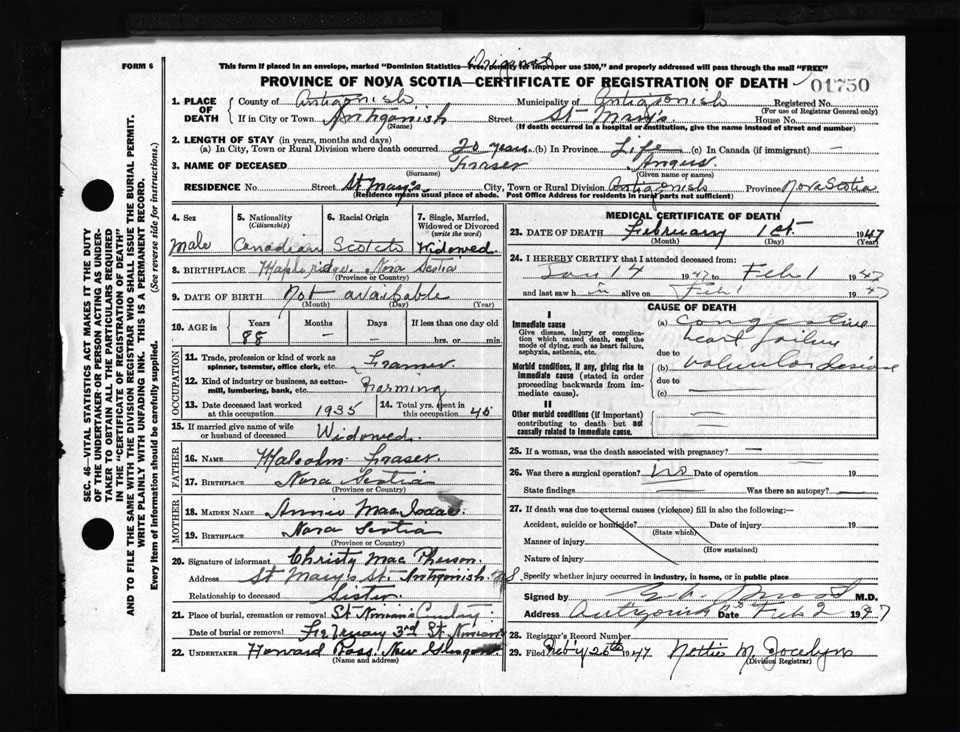 Original
FORM 6 This form if placed in an envelope, marked "Dominion Statistics—Free, penalty for improper use $300," and properly addressed will pass through the mail "FREE"
PROVINCE OF NOVA SCOTIA—CERTIFICATE OF REGISTRATION OF DEATH 01750
1. PLACE OF DEATH County of Antigonish Municipality of Antigonish Registered No.
(For use of Registrar General only)
If in City or Town Antigonish Street St Mary's House No.
(Name) (If death occurred in a hospital or institution, give the name instead of street and number)
2. LENGTH OF STAY (in years, months and days)
(a) In City, Town or Rural Division where death occurred 20 years. (b) In Province Life (c) In Canada (if immigrant) —
3. NAME OF DECEASED Fraser Angus.
(Surname) (Given name or names)
RESIDENCE No. Street St Mary's City, Town or Rural Division Antigonish Province Nova Scotia
(Residence means usual place of abode. Post Office Address for residents in rural parts not sufficient)
4. Sex 5. Nationality (Citizenship) 6. Racial Origin 7. Single, Married, Widowed or Divorced (write the word)
Male Canadian Scotch Widowed.
8. BIRTHPLACE Maple ridge. Nova Scotia
(Province or Country)
9. DATE OF BIRTH Not avaibable
(Month) (Day) (Year)
10. AGE in Years Months Days If less than one day old
88 – – hrs. or min.
OCCUPATION
11. Trade, profession or kind of work as spinner, teamster, office clerk, etc. Framer.
12. Kind of industry or business, as cotton-mill, lumbering, bank, etc. Farming
13. Date deceased last worked at this occupation 1935 14. Total yrs. spent in this occupation 40
15. If married give name of wife or husband of deceased Widowed.
FATHER
16. Name Malcolm Fraser.
17. Birthplace Nova Scotia
(Province or Country)
MOTHER
18. MAIDEN NAME Annie Mac Isaac.
19. Birthplace Nova Scotia
(Province or Country)
20. Signature of informant Christy Mac Pherson.
Address St Mary's St. Antigonish. N S
Relationship to deceased Sister.
21. Place of burial, cremation or removal St Ninians Cemetery
Date of burial or removal February 3rd St Ninians
22. UNDERTAKER Howard Ross. New Glasgow.
(Name and address)
MEDICAL CERTIFICATE OF DEATH
23. DATE OF DEATH February 1st. 1947
(Month) (Day) (Year)
24. I HEREBY CERTIFY that I attended deceased from:
Jan 14 1947 to Feb 1 1947
and last saw h im alive on Feb 1 1947
CAUSE OF DEATH
I
Immediate cause (a) congestive
Give disease, injury or complication which caused death, not the mode of dying, such as heart failure, asphyxia, asthenia, etc. heart failure
due to
Morbid conditions, if any, giving rise to immediate cause (stated in order proceeding backwards from immediate cause). (b) valvular disease
due to
(c)
II
Other morbid conditions (if important) contributing to death but not causally related to immediate cause.
25. If a woman, was the death associated with pregnancy? —
26. Was there a surgical operation? no Date of operation 19
State findings Was there an autopsy?
27. If death was due to external causes (violence) fill in also the following:—
Accident, suicide or homicide? Date of injury 19
(State which)
Manner of injury
(How sustained)
Nature of injury
Specify whether injury occurred in industry, in home, or in public place
Signed by M.D.
Address Antigonish N S Date Feb 2 1947
28. Registrar's Record Number
29. Filed Feb'y 25th 1947 Nettie M Jocelyn
(Division Registrar)
SEC. 46—VITAL STATISTICS ACT MAKES IT THE DUTY
OF THE UNDERTAKER OR PERSON ACTING AS UNDER-
TAKER TO OBTAIN ALL THE PARTICULARS REQUIRED
IN THE "CERTIFICATE OF REGISTRATION OF DEATH"
AND TO FILE THE SAME WITH THE DIVISION REGISTRAR WHO SHALL ISSUE THE BURIAL PERMIT.
WRITE PLAINLY WITH UNFADING INK. THIS IS A PERMANENT RECORD.
Every item of information should be carefully supplied. (See reverse side for instructions.)